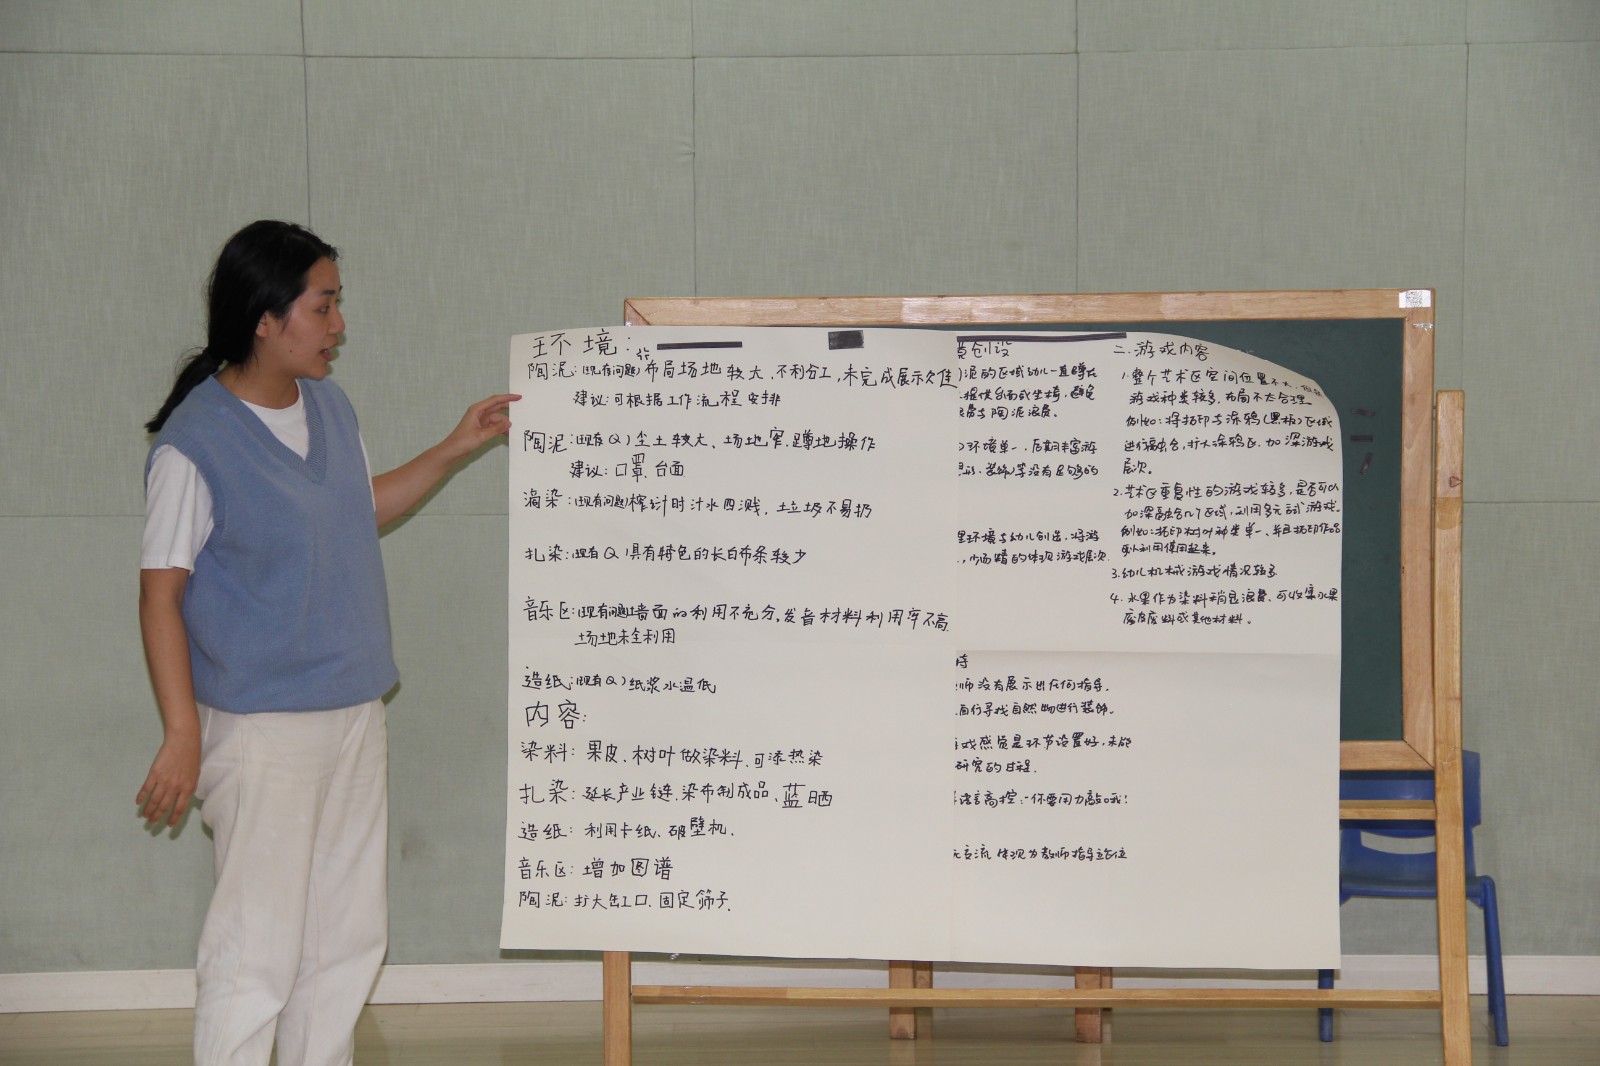 环境:
陶泥:(现有问题)布局场地较大、不利分工,未完成展示欠佳
建议:可根据工作流程安排
陶泥:(现有Q)尘土较大、场地窄、蹲地操作
建议:口罩、台面
染:(现有问题)榨汁时汁水四溅,垃圾不易扔
扎染:(现有Q)具有特色的长白布条较少
音乐区:(现有问题)墙面的利用不充分,发音材料利用率不高
场地未全利用
造纸:(现有Q)纸浆水温低
内容:
染料:果皮、树叶做染料、可添热染
扎染:延长产业链、染布制成品、蓝晒
造纸:利用卡纸、破壁机、
音乐区:增加图谱
陶泥:扩大缸口、固定筛子、
创设
泥的区域幼儿一直蹲在
提供台面或坐椅,避免
陶泥
环境单一、后期丰富游
等没有足够的
环境与幼儿创造,将游
的体现游戏层次
师没有展示出任何指导.
自行寻找自然物进行装饰.
戏感觉是环节设置好,未能
研究的过程.
语言高控:“你要用力敲哦!
交流 体现为教师指导站位
二.游戏内容
1.整个艺术区空间位置不大、
游戏种类较多,布局不太合理
例如:将拓印与涂鸦(黑板)区域
进行融合,扩大涂鸦区,加深游戏
层次。
2.艺术区重复性的游戏较多,是否可以
加深融合几个区域,利用多元试游戏。
例如:拓印树叶种类单一、并且拓印作品
可以利用使用起来。
3.幼儿机械游戏情况较多
4.水果作为染料稍显浪费、可收集水果
废皮废料或其他材料。